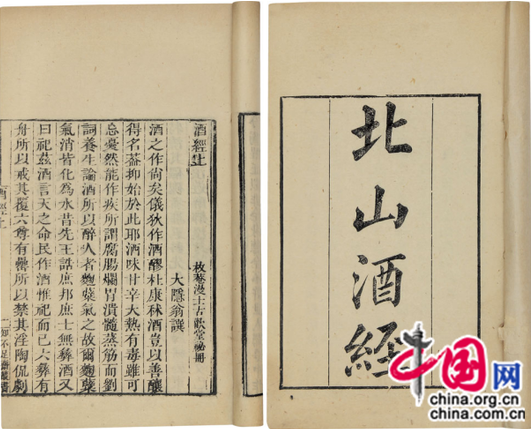 北山酒經
酒經上
枚菴漫士古歡堂祕冊
大隱翁譔
酒之作尚矣儀狄作酒醪杜康秫酒豈以善釀
得名葢抑始於此耶酒味甘辛大熱有毒雖可
忘憂然能作疾所謂腐腸爛胃潰髓蒸筋而劉
詞養生論酒所以醉人者麴蘖氣之故爾麴蘖
氣消皆化為水昔先王誥庶邦庶士無彝酒又
曰祀茲酒言天之命民作酒惟祀而已六彝有
舟所以戒其覆六尊有罍所以禁其淫陶侃劇
酒經上
一
知不足齋叢書
中国网
china.org.cn
china.com.cn